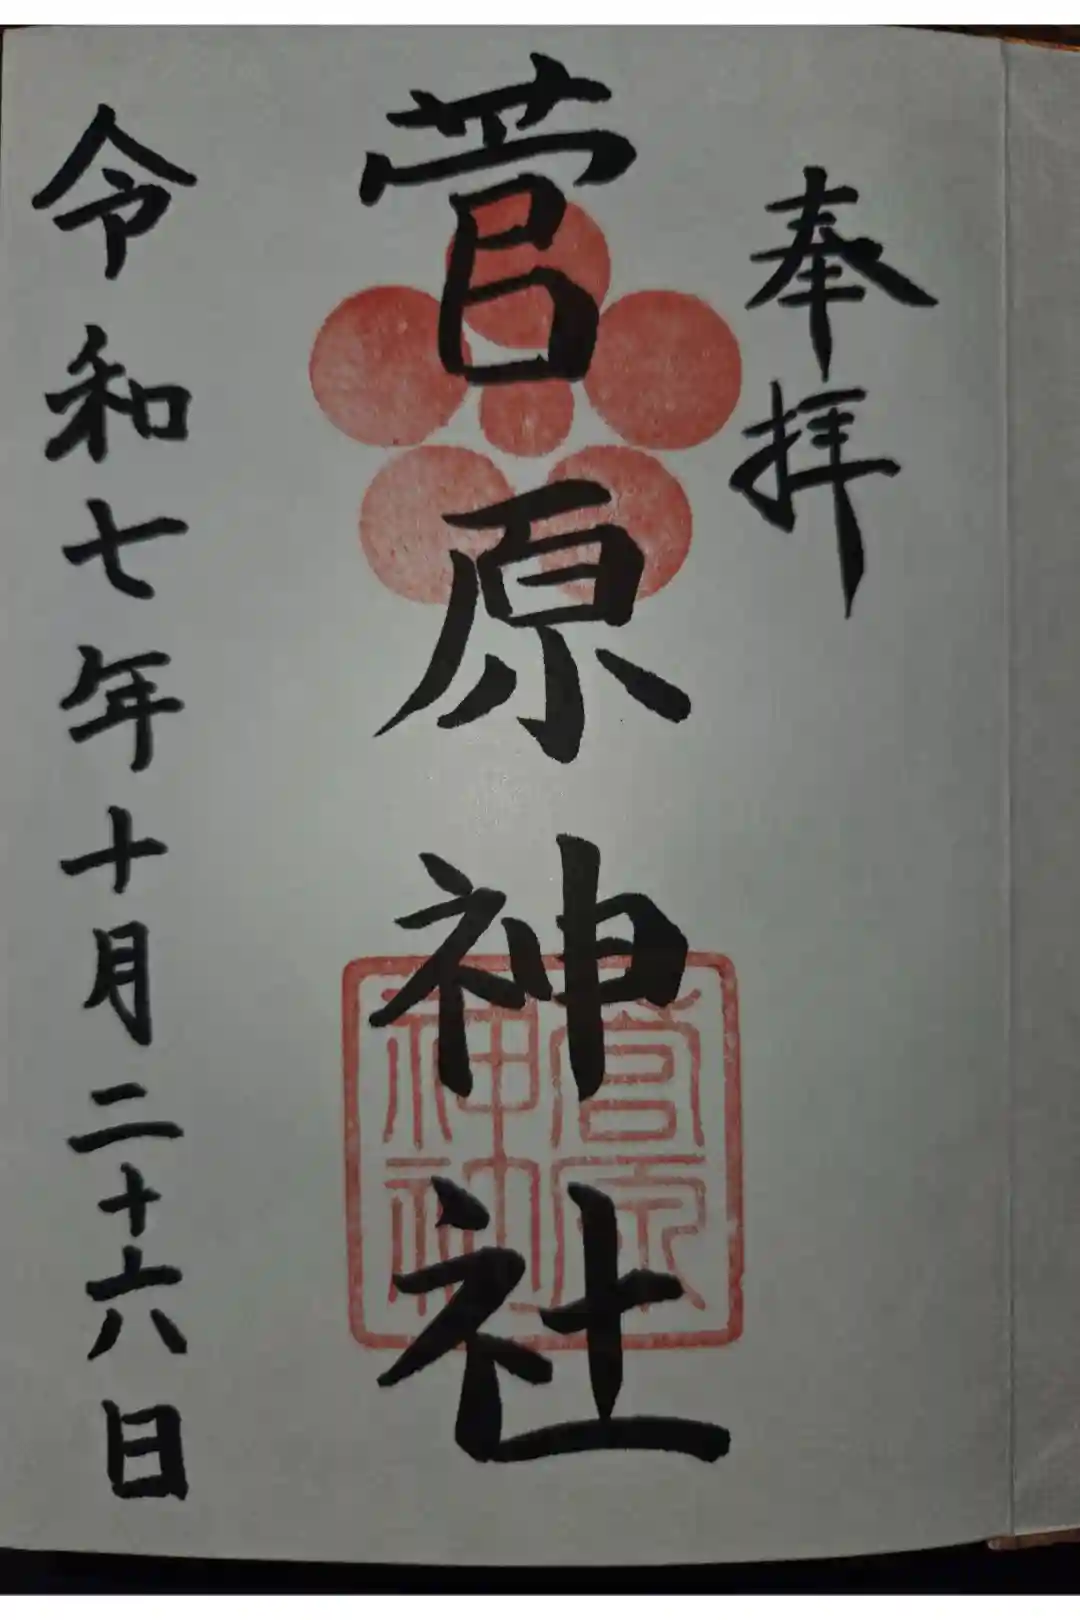 奉拝
菅原神社
菅原神社
令和七年十月二十六日